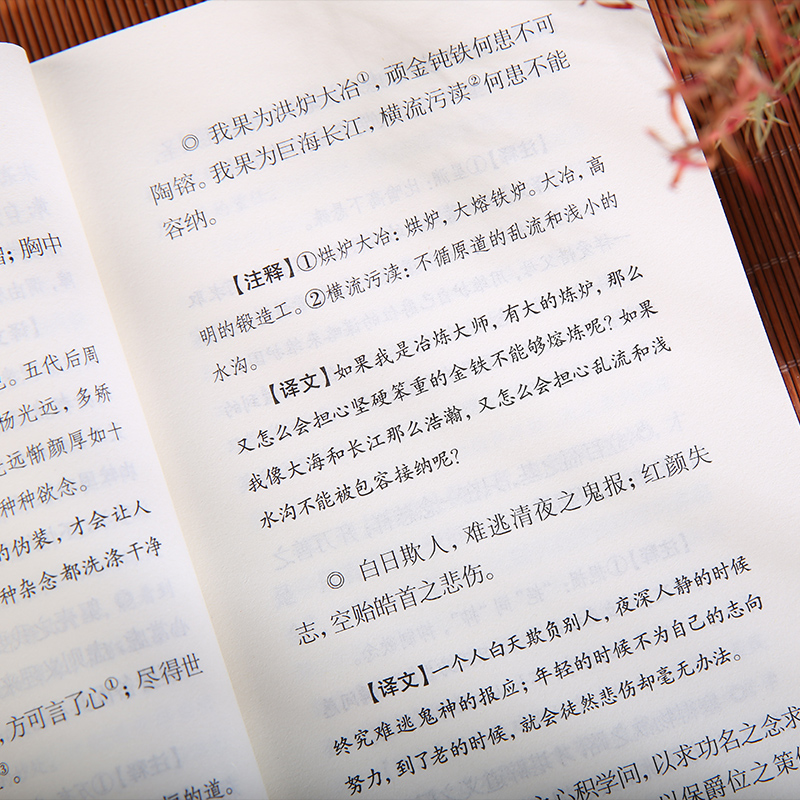 胸中
。五代后周
杨光远，多矫
光远惭颜厚如十
种种欲念。
的伪装，才会让人
种杂念都洗涤干净
，方可言了心①；尽得世
③。
恒的道。
◎ 我果为洪炉大冶①，顽金钝铁何患不可
陶镕。我果为巨海长江，横流污渎②何患不能
容纳。
【注释】①烘炉大冶：烘炉，大熔铁炉。大冶，高
明的锻造工。②横流污渎：不循原道的乱流和浅小的
水沟。
【译文】如果我是冶炼大师，有大的炼炉，那么
又怎么会担心坚硬笨重的金铁不能够熔炼呢？如果
我像大海和长江那么浩瀚，又怎么会担心乱流和浅
水沟不能被包容接纳呢？
◎ 白日欺人，难逃清夜之鬼报；红颜失
志，空贻皓首之悲伤。
【译文】一个人白天欺负别人，夜深人静的时候
终究难逃鬼神的报应；年轻的时候不为自己的志向
努力，到了老的时候，就会徒然悲伤却毫无办法。
心积学问，以求功名之念求
以保爵位之策保